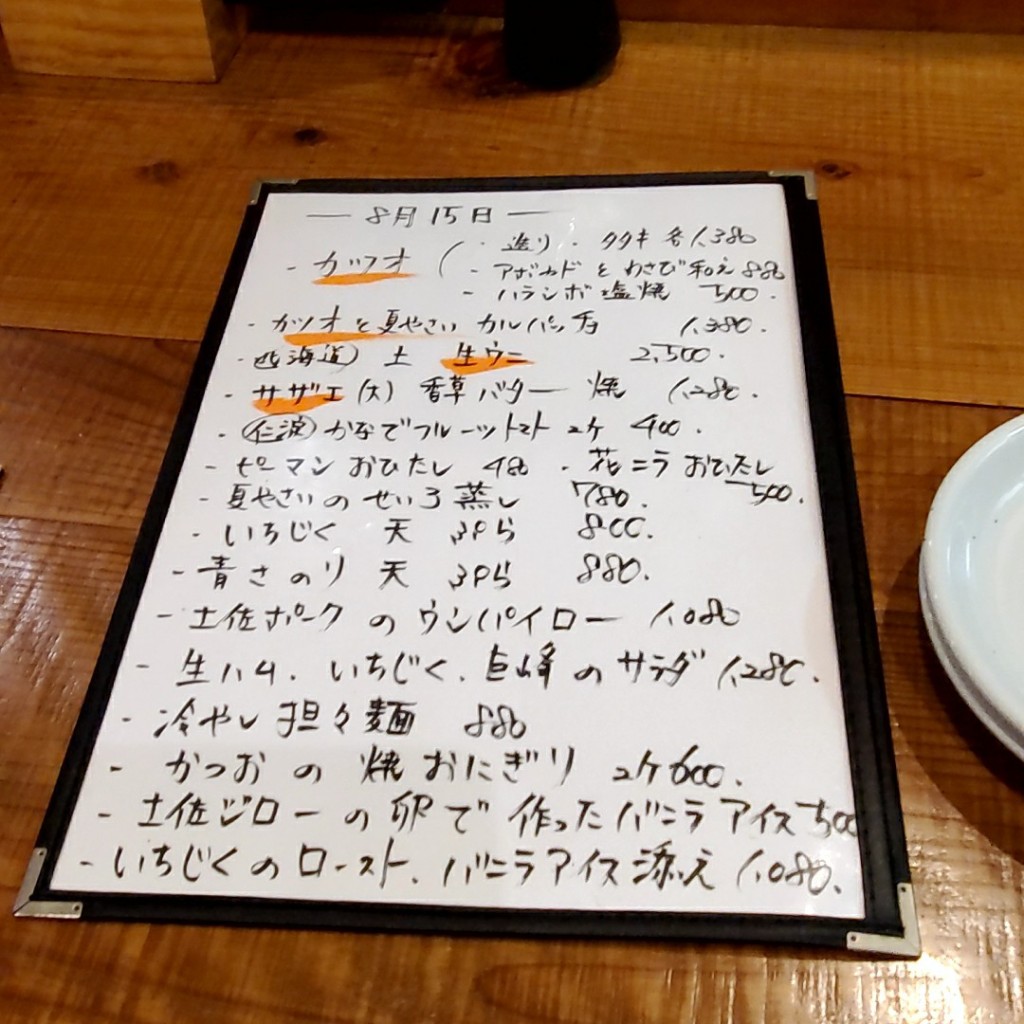 — 8月15日 —
- カツオ ( ・造り・タタキ 各1,380
- アボカドとわさび和え 880
- ハランボ塩焼 500.
- カツオと夏やさい カルパッチョ 1,380.
・北海道) 生ウニ 2,500.
- サザエ(大) 香草バター焼 1,280.
- (仁淀) かなでフルーツトマト 2ケ 400.
- ピーマン おひたし 480 ・花ニラ おひたし
500.
- 夏やさいのせいろ蒸し 780.
- いちじく 天ぷら 800.
- 青さのり 天ぷら 880.
- 土佐ポークのウンパイロー 1,080
- 生ハム、いちじく、巨峰のサラダ 1,280.
- 冷やし担々麺 880
- かつおの焼おにぎり 2ケ600.
- 土佐ジローの卵で作ったバニラアイス 500
- いちじくのロースト、バニラアイス添え 1,080.